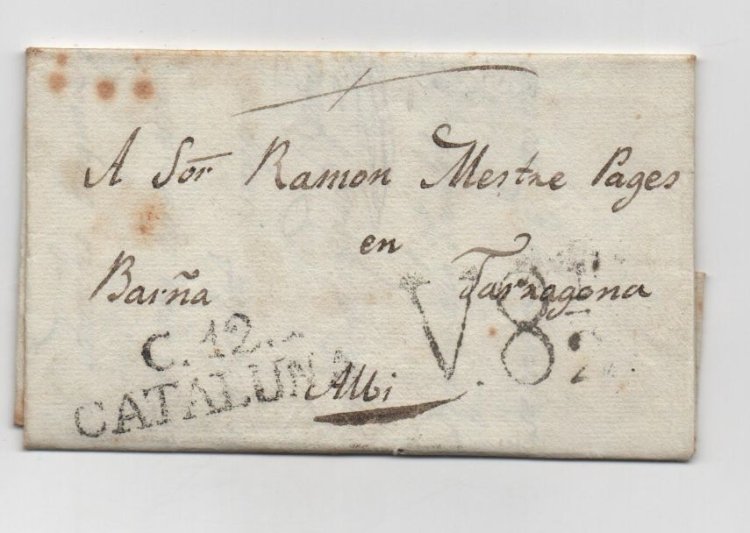 A Sor Ramon Mestre Pages
en
Barña Tarragona
C. 12.
CATALUÑA V.8
Albi